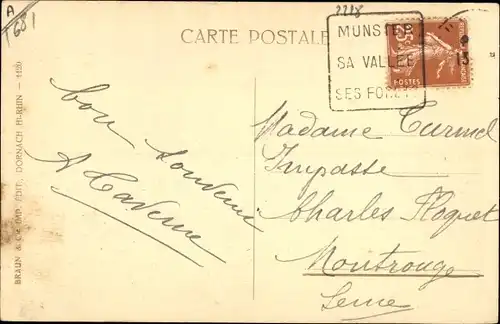 A
681
2228
CARTE POSTALE
MUNSTER
SA VALLÉE
SES FORETS
25c
POSTES
13
BRAUN & Cie IMP. EDIT. DORNACH H.-RHIN — 1120
bon souvenir
A Caverne
Madame Curmel
Impasse
Charles Floquet
Montrouge
Seine